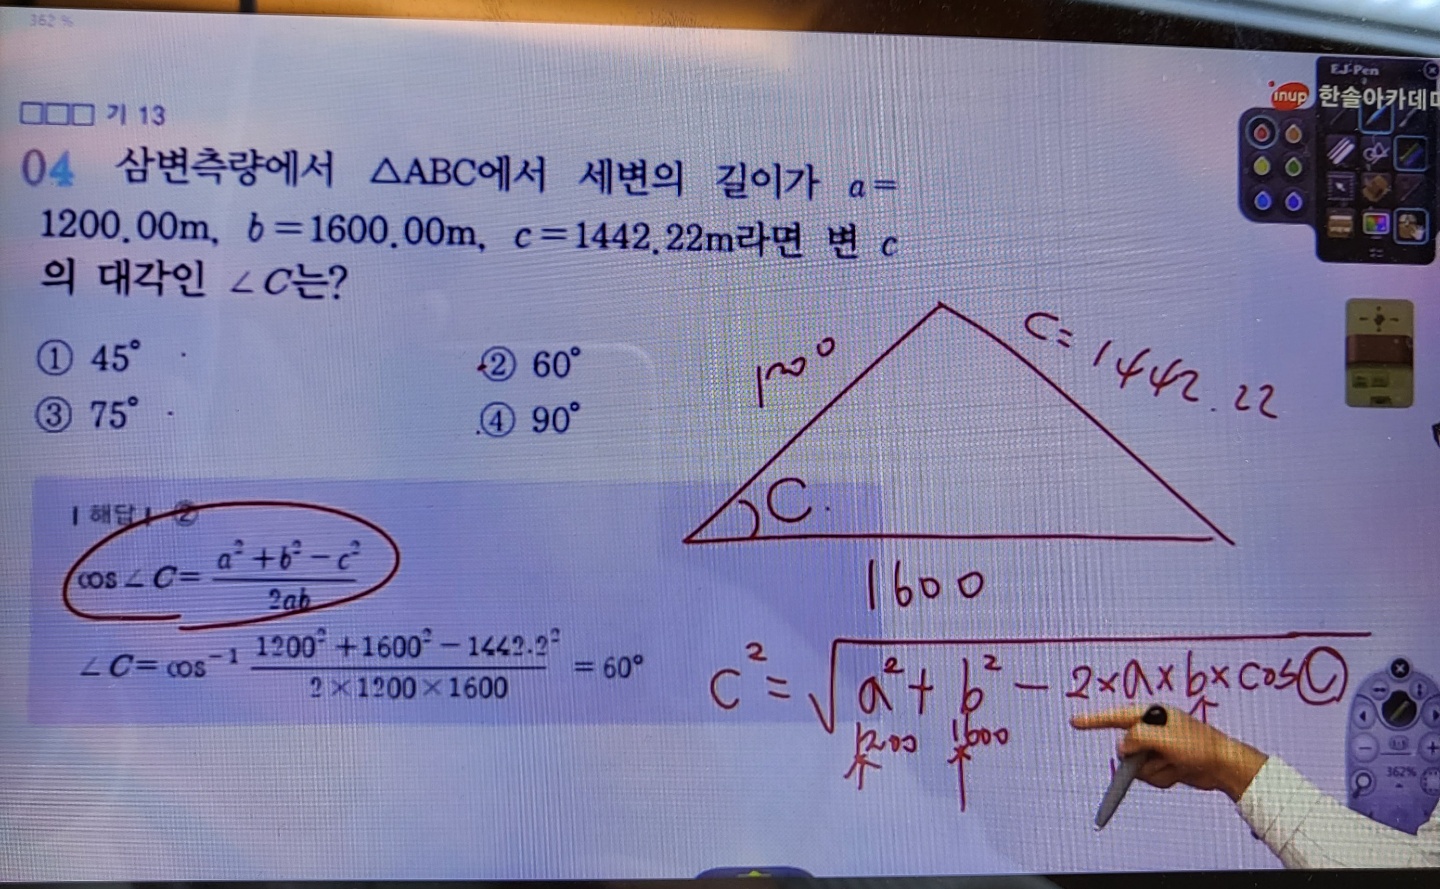 362 %
EJ-Pen
inup 한솔아카데미
□□□ 기 13
04 삼변측량에서 △ABC에서 세변의 길이가 a=
1200.00m, b=1600.00m, c=1442.22m라면 변 c
의 대각인 ∠C는?
① 45° ② 60°
③ 75° ④ 90°
| 해답 | ②
cos∠C= (a²+b²-c²)/(2ab)
∠C=cos⁻¹ (1200²+1600²-1442.2²)/(2×1200×1600) =60°
1200
C=1442.22
C
1600
C²=√(a²+b²-2×a×b×cosC)
1200 1600
362%